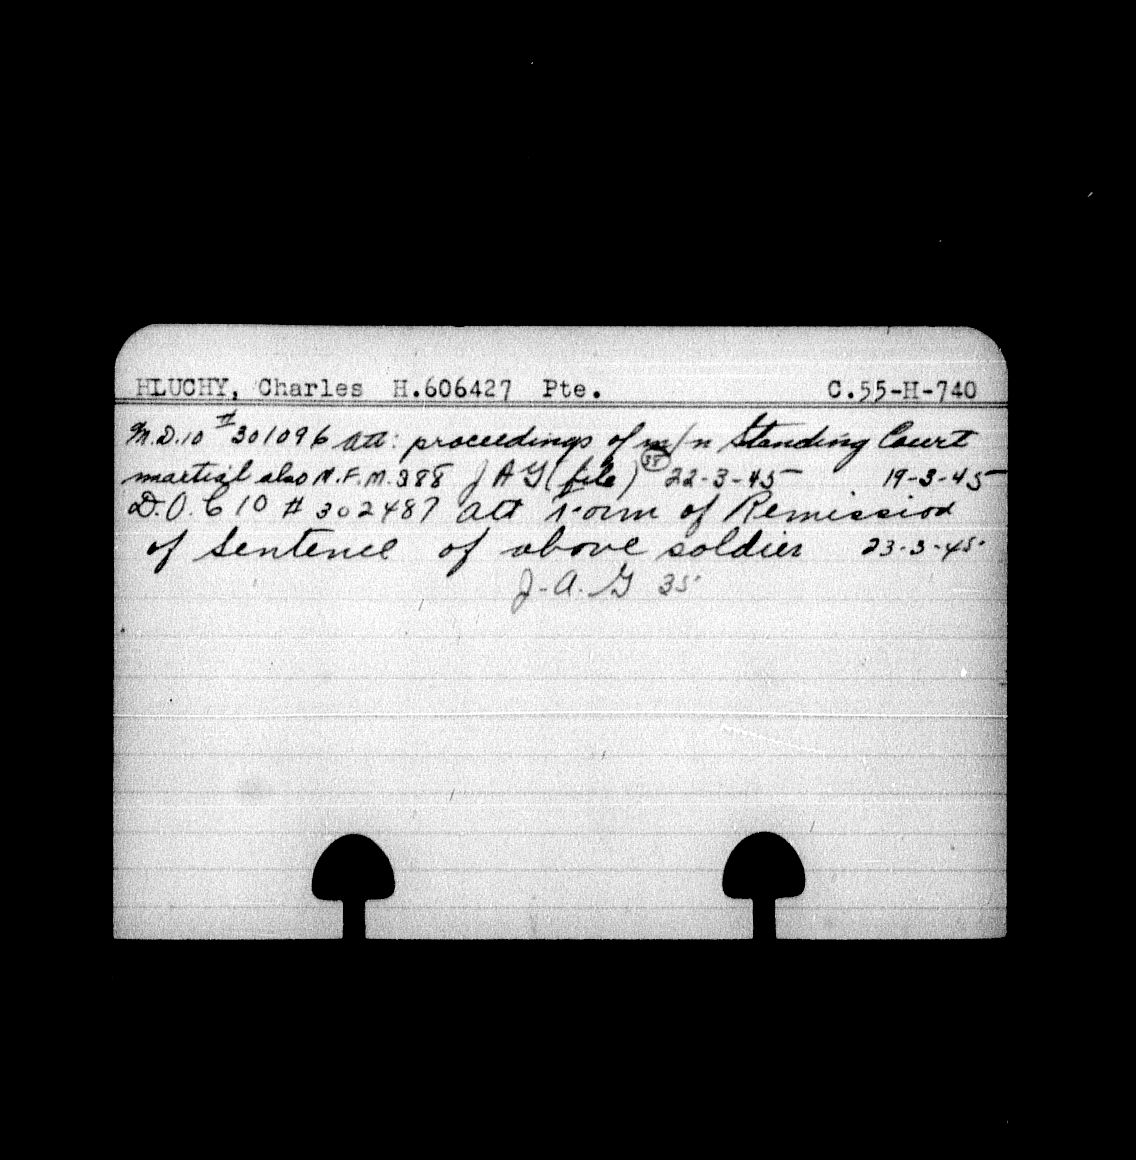 HLUCHY, Charles H.606427 Pte. C.55-H-740
M.D.10 #301096 att: proceedings of m/n Standing Court
martial also N.F.M. 388 J A G (file) 35 22-3-45 19-3-45
D.O.C 10 # 302487 att Form of Remission
of Sentence of above soldier 23-3-45.
J.A.G 35